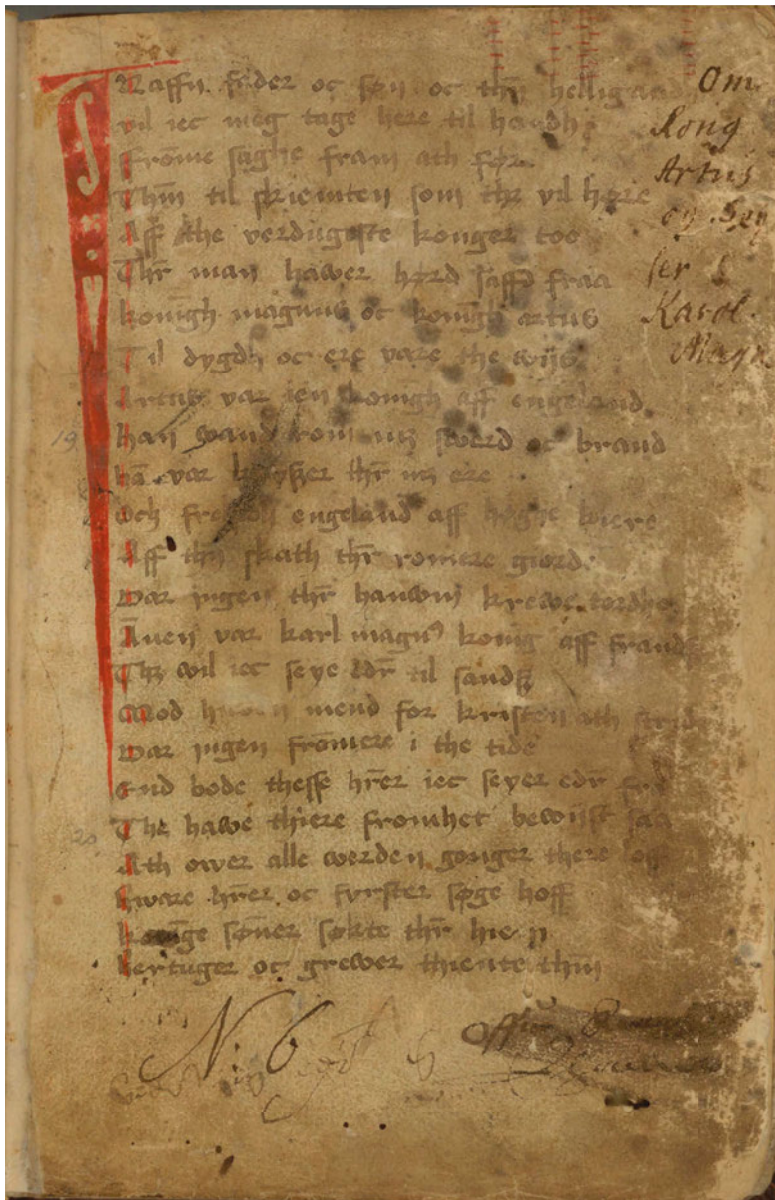 I Naffn fader oc søn oc thn̄ helligand
vil iec meg tage here til handh
Frōme saghe fram ath før
Thm̄ til skiemten som thr̄ vil høre
Aff the verdugeste konger too
Thr̄ man hawer hørd saffd fraa
konīgh magnus oc konīgh artus
Til dygdh oc ere vare the wijs
Artus var ien konīgh aff engeland
han wand rom mz swerd oc brand
hā var keyser thr̄ mz ere
Och engeland aff høghe kiere
Aff thn̄ skath thr̄ romere giord
War jngen thr̄ hannwm krewe tordhe
Auen var karl magnꝰ konig aff franck
Thz wil iec seye edr̄ til sandz
Mod mend for kristen ath strid
War jngen frōmere i the tide
End bode thesse hr̄er iec seyer edr̄ fra
The hawe thiere fromhet bewijst saa
Ath ower alle werden gonger there off
hware hr̄er oc fyrster søge hoff
konīge søner søkte thr̄ hien
hertuger oc grewer thiente thm̄
Om
Kong
Artus
og Key
ser
Karol.
Magn
19
20
N: 6